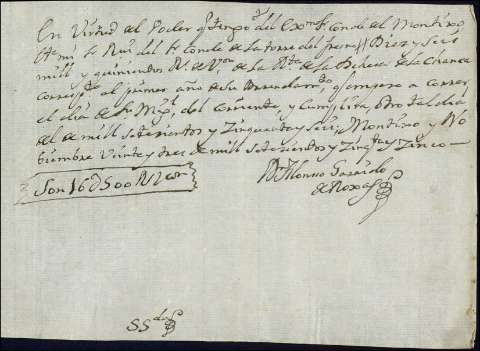 En Virtud del Poder q.e tengo del Exmo. S.r Conde del Montijo
mi S.r Rvi del S.r Conde de la Torre del fresno Diez y seis
mill y quinientos R.s de V.on de la R.ta de la Dehesa de la
corresp.te al primer año de su Arrendam.to q.e empezo a correr
el dia de Sn. Mig.l del corriente, y cumplira otro tal dia
del de mill setecientos y Zinquenta y seis; Montijo y No
biembre Veinte y tres de mill setecientos y Zinq.ta y Zinco
Son 16d500 Rs. Von
Dn. Alonso Garrido
de Roxas